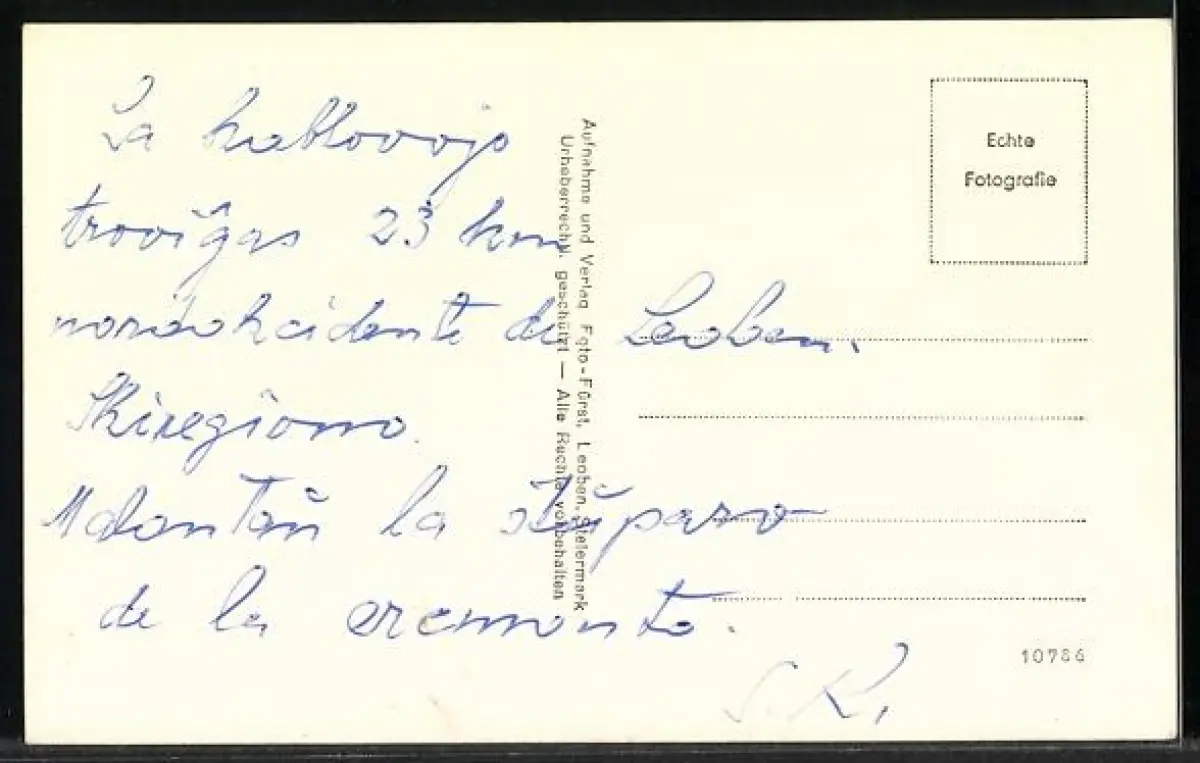 La kablovojo
troviĝas 23 km
nordokcidente de Leoben.
Skiregiono.
Malantaŭ la ŝtuparo
de la ercmonto.
S. K.
Aufnahme und Verlag Foto-Fürst, Leoben, Steiermark
Urheberrechtl. geschützt — Alle Rechte vorbehalten
Echte
Fotografie
10786